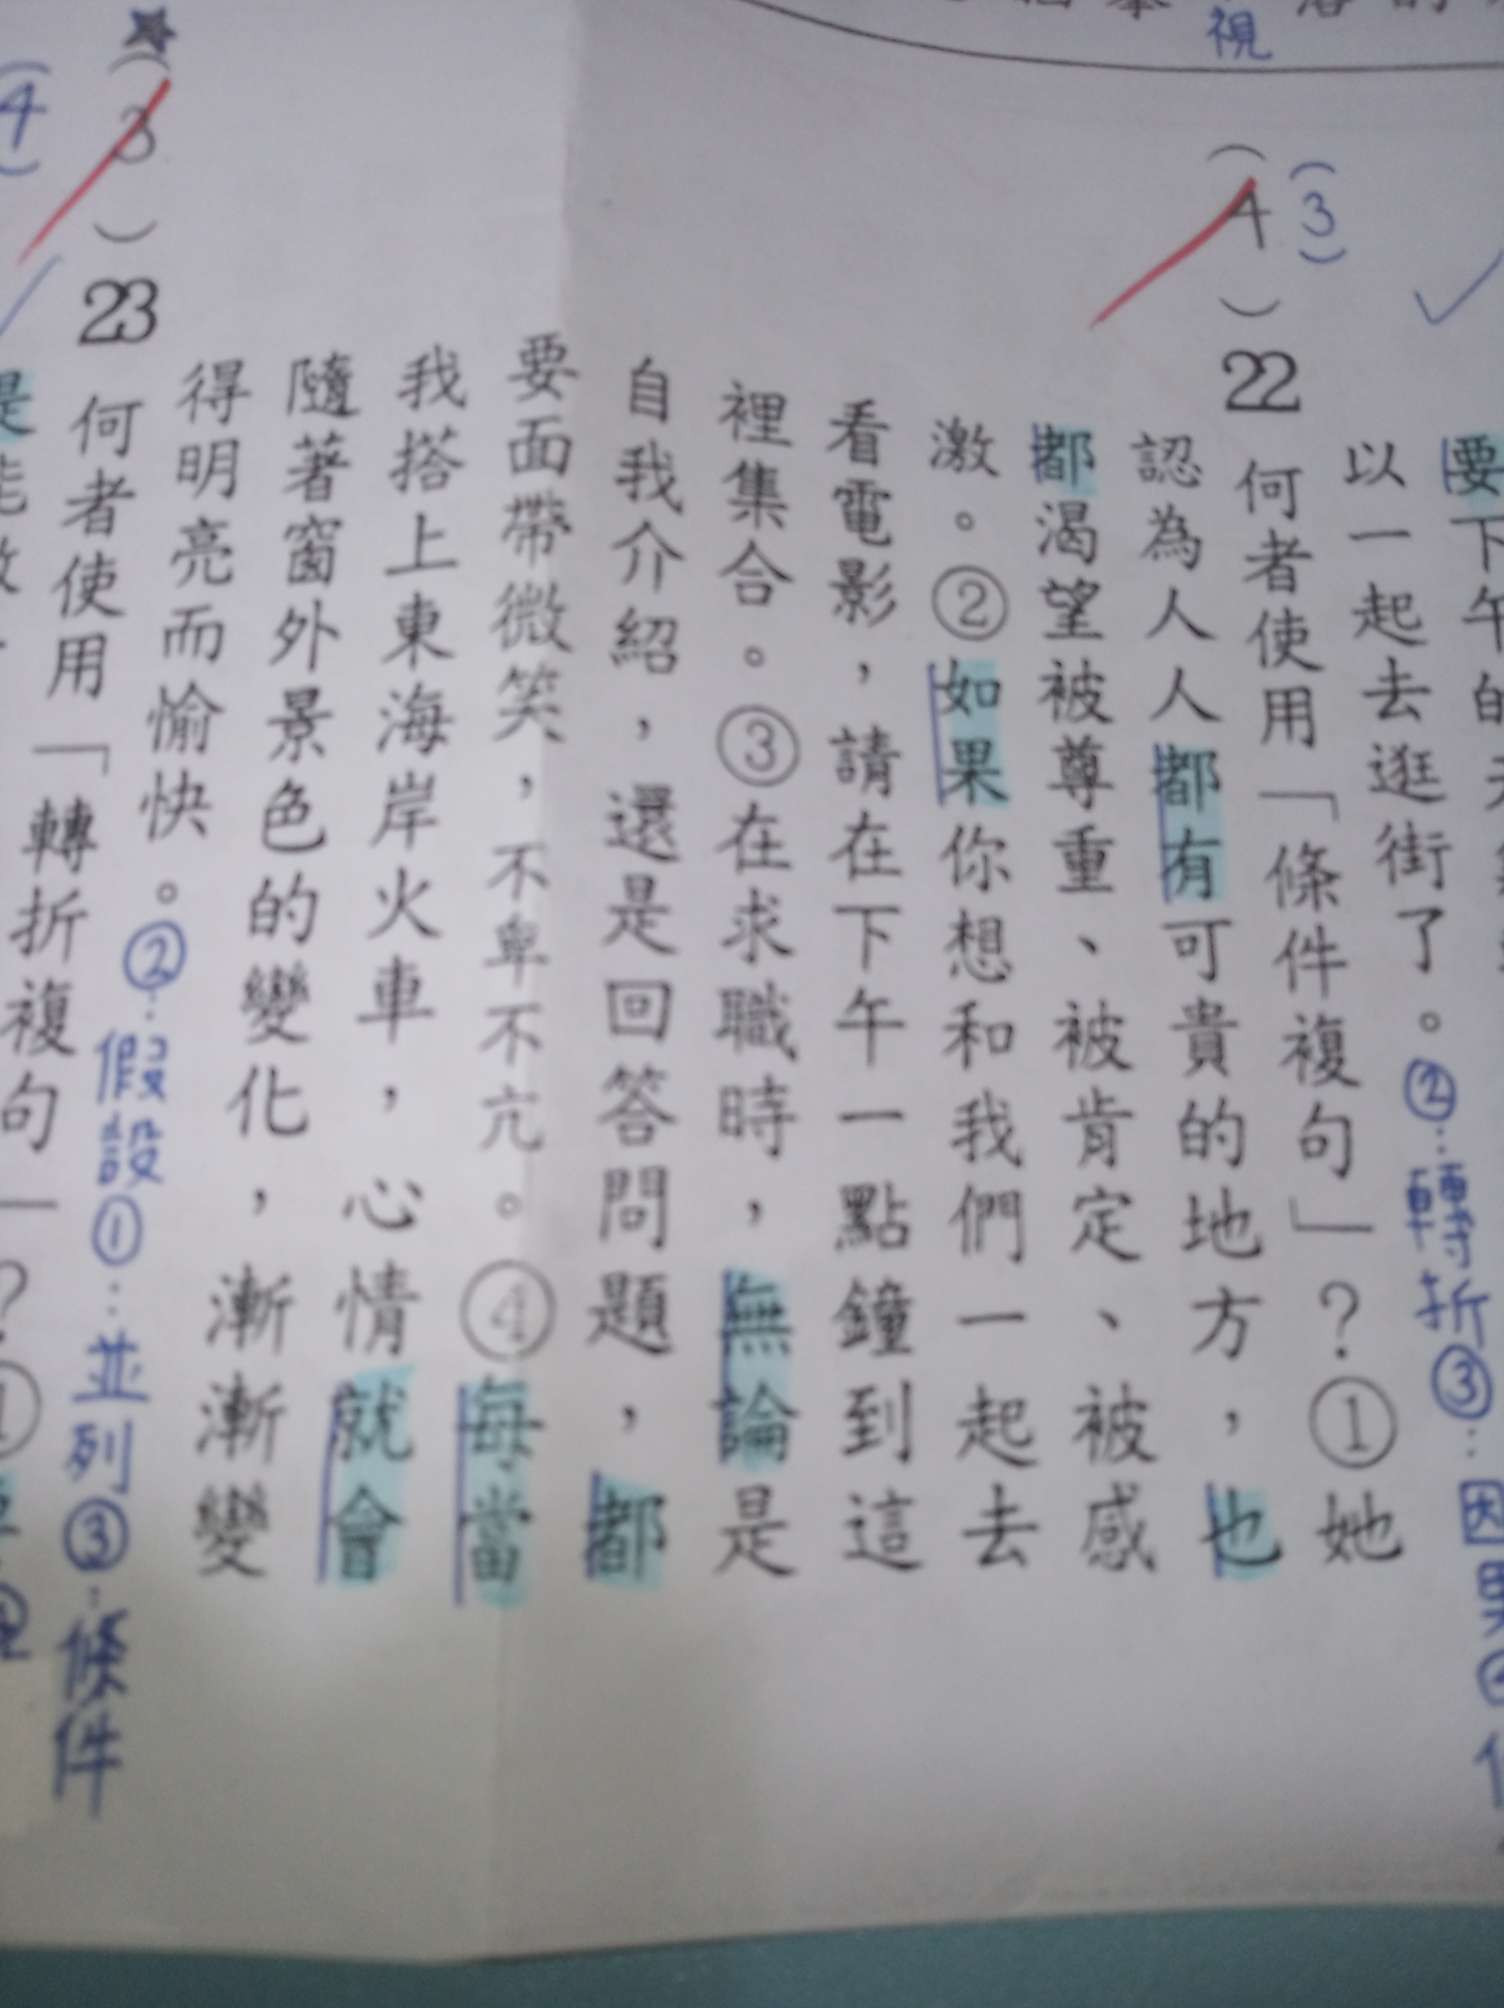 視
要下午的
以一起去逛街了。②:轉折③:因果④
(4)(3)
22 何者使用「條件複句」?①她
認為人人都有可貴的地方,也
都渴望被尊重、被肯定、被感
激。②如果你想和我們一起去
看電影,請在下午一點鐘到這
裡集合。③在求職時,無論是
自我介紹,還是回答問題,都
要面帶微笑,不卑不亢。④每當
我搭上東海岸火車,心情就會
隨著窗外景色的變化,漸漸變
得明亮而愉快。②:假設①:並列③:條件
(3)23 何者使用「轉折複句」?①
(4)
是能